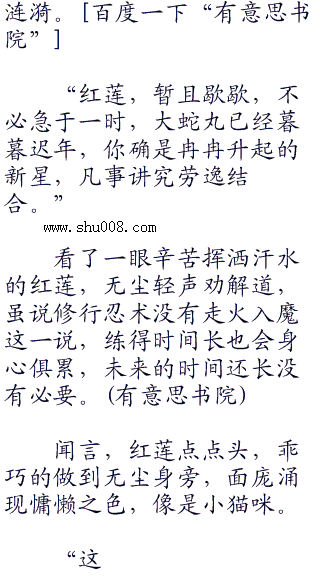 涟漪。[百度一下“有意思书
院”]
“红莲，暂且歇歇，不
必急于一时，大蛇丸已经暮
暮迟年，你确是冉冉升起的
新星，凡事讲究劳逸结
合。”
www.shu008.com
看了一眼辛苦挥洒汗水
的红莲，无尘轻声劝解道，
虽说修行忍术没有走火入魔
这一说，练得时间长也会身
心俱累，未来的时间还长没
有必要。(有意思书院)
闻言，红莲点点头，乖
巧的做到无尘身旁，面庞涌
现慵懒之色，像是小猫咪。
“这